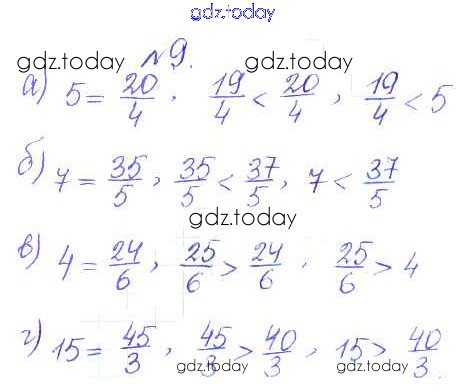 gdz.today
gdz.today №9. gdz.today
а) 5 = 20/4, 19/4 < 20/4, 19/4 < 5
б) 7 = 35/5, 35/5 < 37/5, 7 < 37/5
gdz.today
в) 4 = 24/6, 25/6 > 24/6, 25/6 > 4
г) 15 = 45/3, 45/3 > 40/3, 15 > 40/3.
gdz.today gdz.today